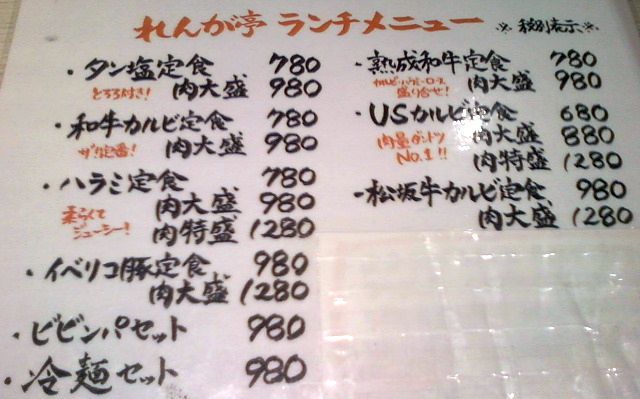 れんが亭 ランチメニュー ※税別表示※
・タン塩定食 780
とろろ付き! 肉大盛 980
・和牛カルビ定食 780
ザ・定番! 肉大盛 980
・ハラミ定食 780
肉大盛 980
柔らくてジューシー! 肉特盛 1280
・イベリコ豚定食 980
肉大盛 1280
・ビビンパセット 980
・冷麺セット 980
・熟成和牛定食 780
盛り合せ! 肉大盛 980
・USカルビ定食 680
肉量ダントツ 肉大盛 880
No.1!! 肉特盛 1280
・松坂牛カルビ定食 980
肉大盛 1280